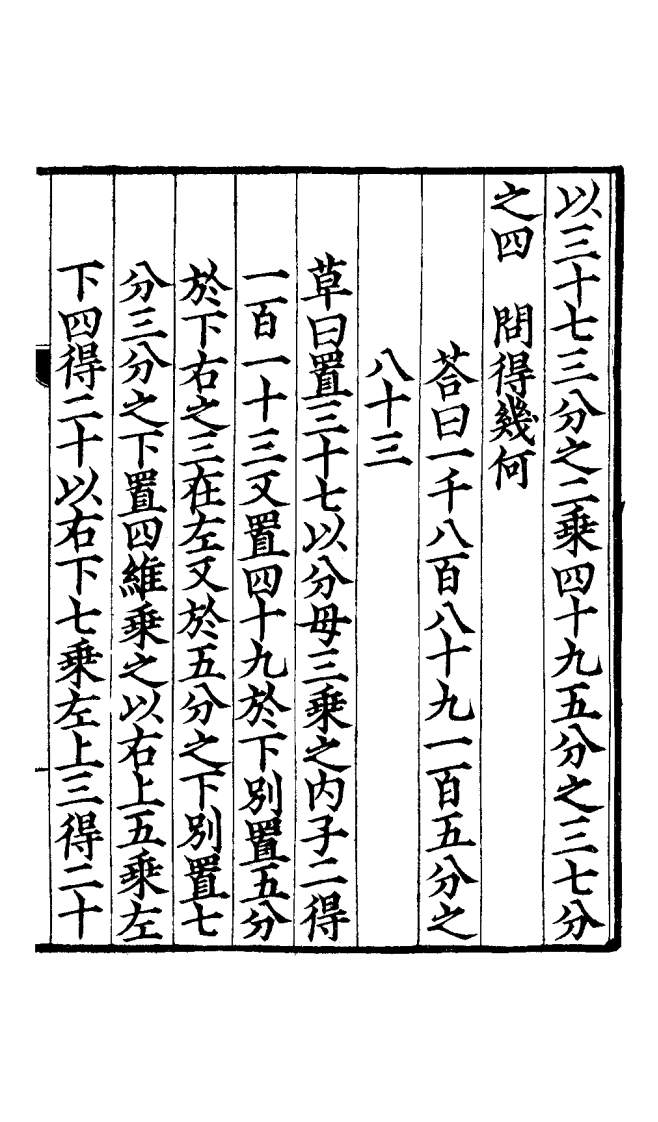 以三十七三分之二乗四十九五分之三七分
之四　問得幾何
荅曰一千八百八十九一百五分之
八十三
草曰置三十七以分母三乗之内子二得
一百一十三又置四十九於下別置五分
於下右之三在左又於五分之下別置七
分三分之下置四維乗之以右上五乗左
下四得二十以右下七乗左上三得二十